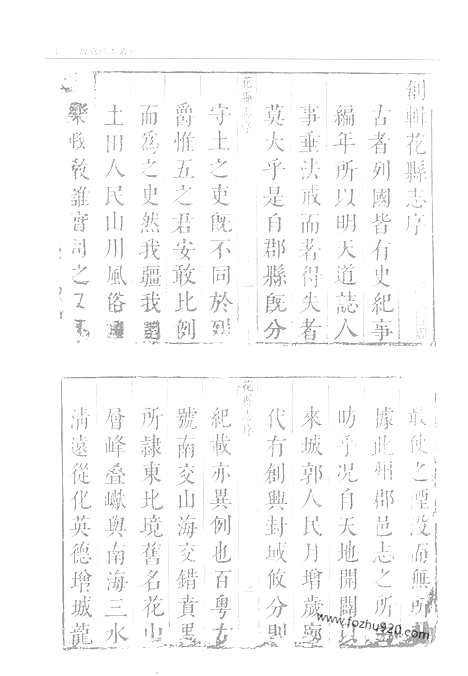 創輯花縣志序
古者列國皆有史紀事
編年所以明天道誌人
事垂法戒而著得失者
莫大乎是自郡縣旣分
花縣志序
一
守土之吏旣不同於列
爵惟五之君安敢比例
而爲之史然我疆我
土田人民山川風俗
敎誰實司之又
敢使之湮没而無所
據此州郡邑志之所
昉乎况自天地開闢以
來城郭人民月增歲
代有創興封域攸分則
花縣志序
紀載亦異例也百粤古
號南交山海交錯賁禺
所隷東北境舊名花山
層峰叠巘與南海三水
清遠從化英德增城龍
www.fozhu920.com